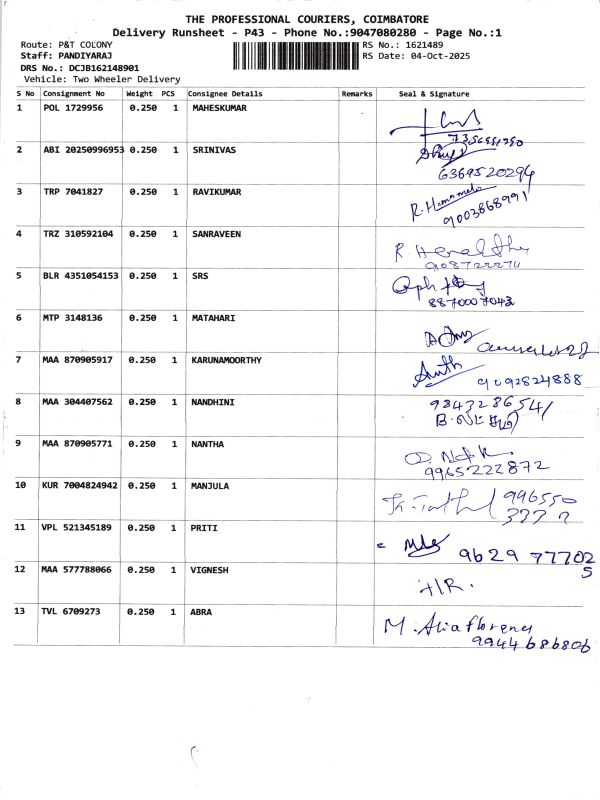 THE PROFESSIONAL COURIERS, COIMBATORE
Delivery Runsheet - P43 - Phone No.:9047080280 - Page No.:1
Route: P&T COLONY
RS No.: 1621489
Staff: PANDIYARAJ
RS Date: 04-Oct-2025
DRS No.: DCJB162148901
Vehicle: Two Wheeler Delivery
S No Consignment No Weight PCS Consignee Details Remarks Seal & Signature
1 POL 1729956 0.250 1 MAHESKUMAR
2 ABI 20250996953 0.250 1 SRINIVAS
6369520294
3 TRP 7041827 0.250 1 RAVIKUMAR
9003868991
4 TRZ 310592104 0.250 1 SANRAVEEN
5 BLR 4351054153 0.250 1 SRS
8870007043
6 MTP 3148136 0.250 1 MATAHARI
7 MAA 870905917 0.250 1 KARUNAMOORTHY
9092824888
8 MAA 304407562 0.250 1 NANDHINI
9843286541
9 MAA 870905771 0.250 1 NANTHA
9965222872
10 KUR 7004824942 0.250 1 MANJULA
996550
11 VPL 521345189 0.250 1 PRITI
9629 777025
12 MAA 577788066 0.250 1 VIGNESH
13 TVL 6709273 0.250 1 ABRA
9944686806